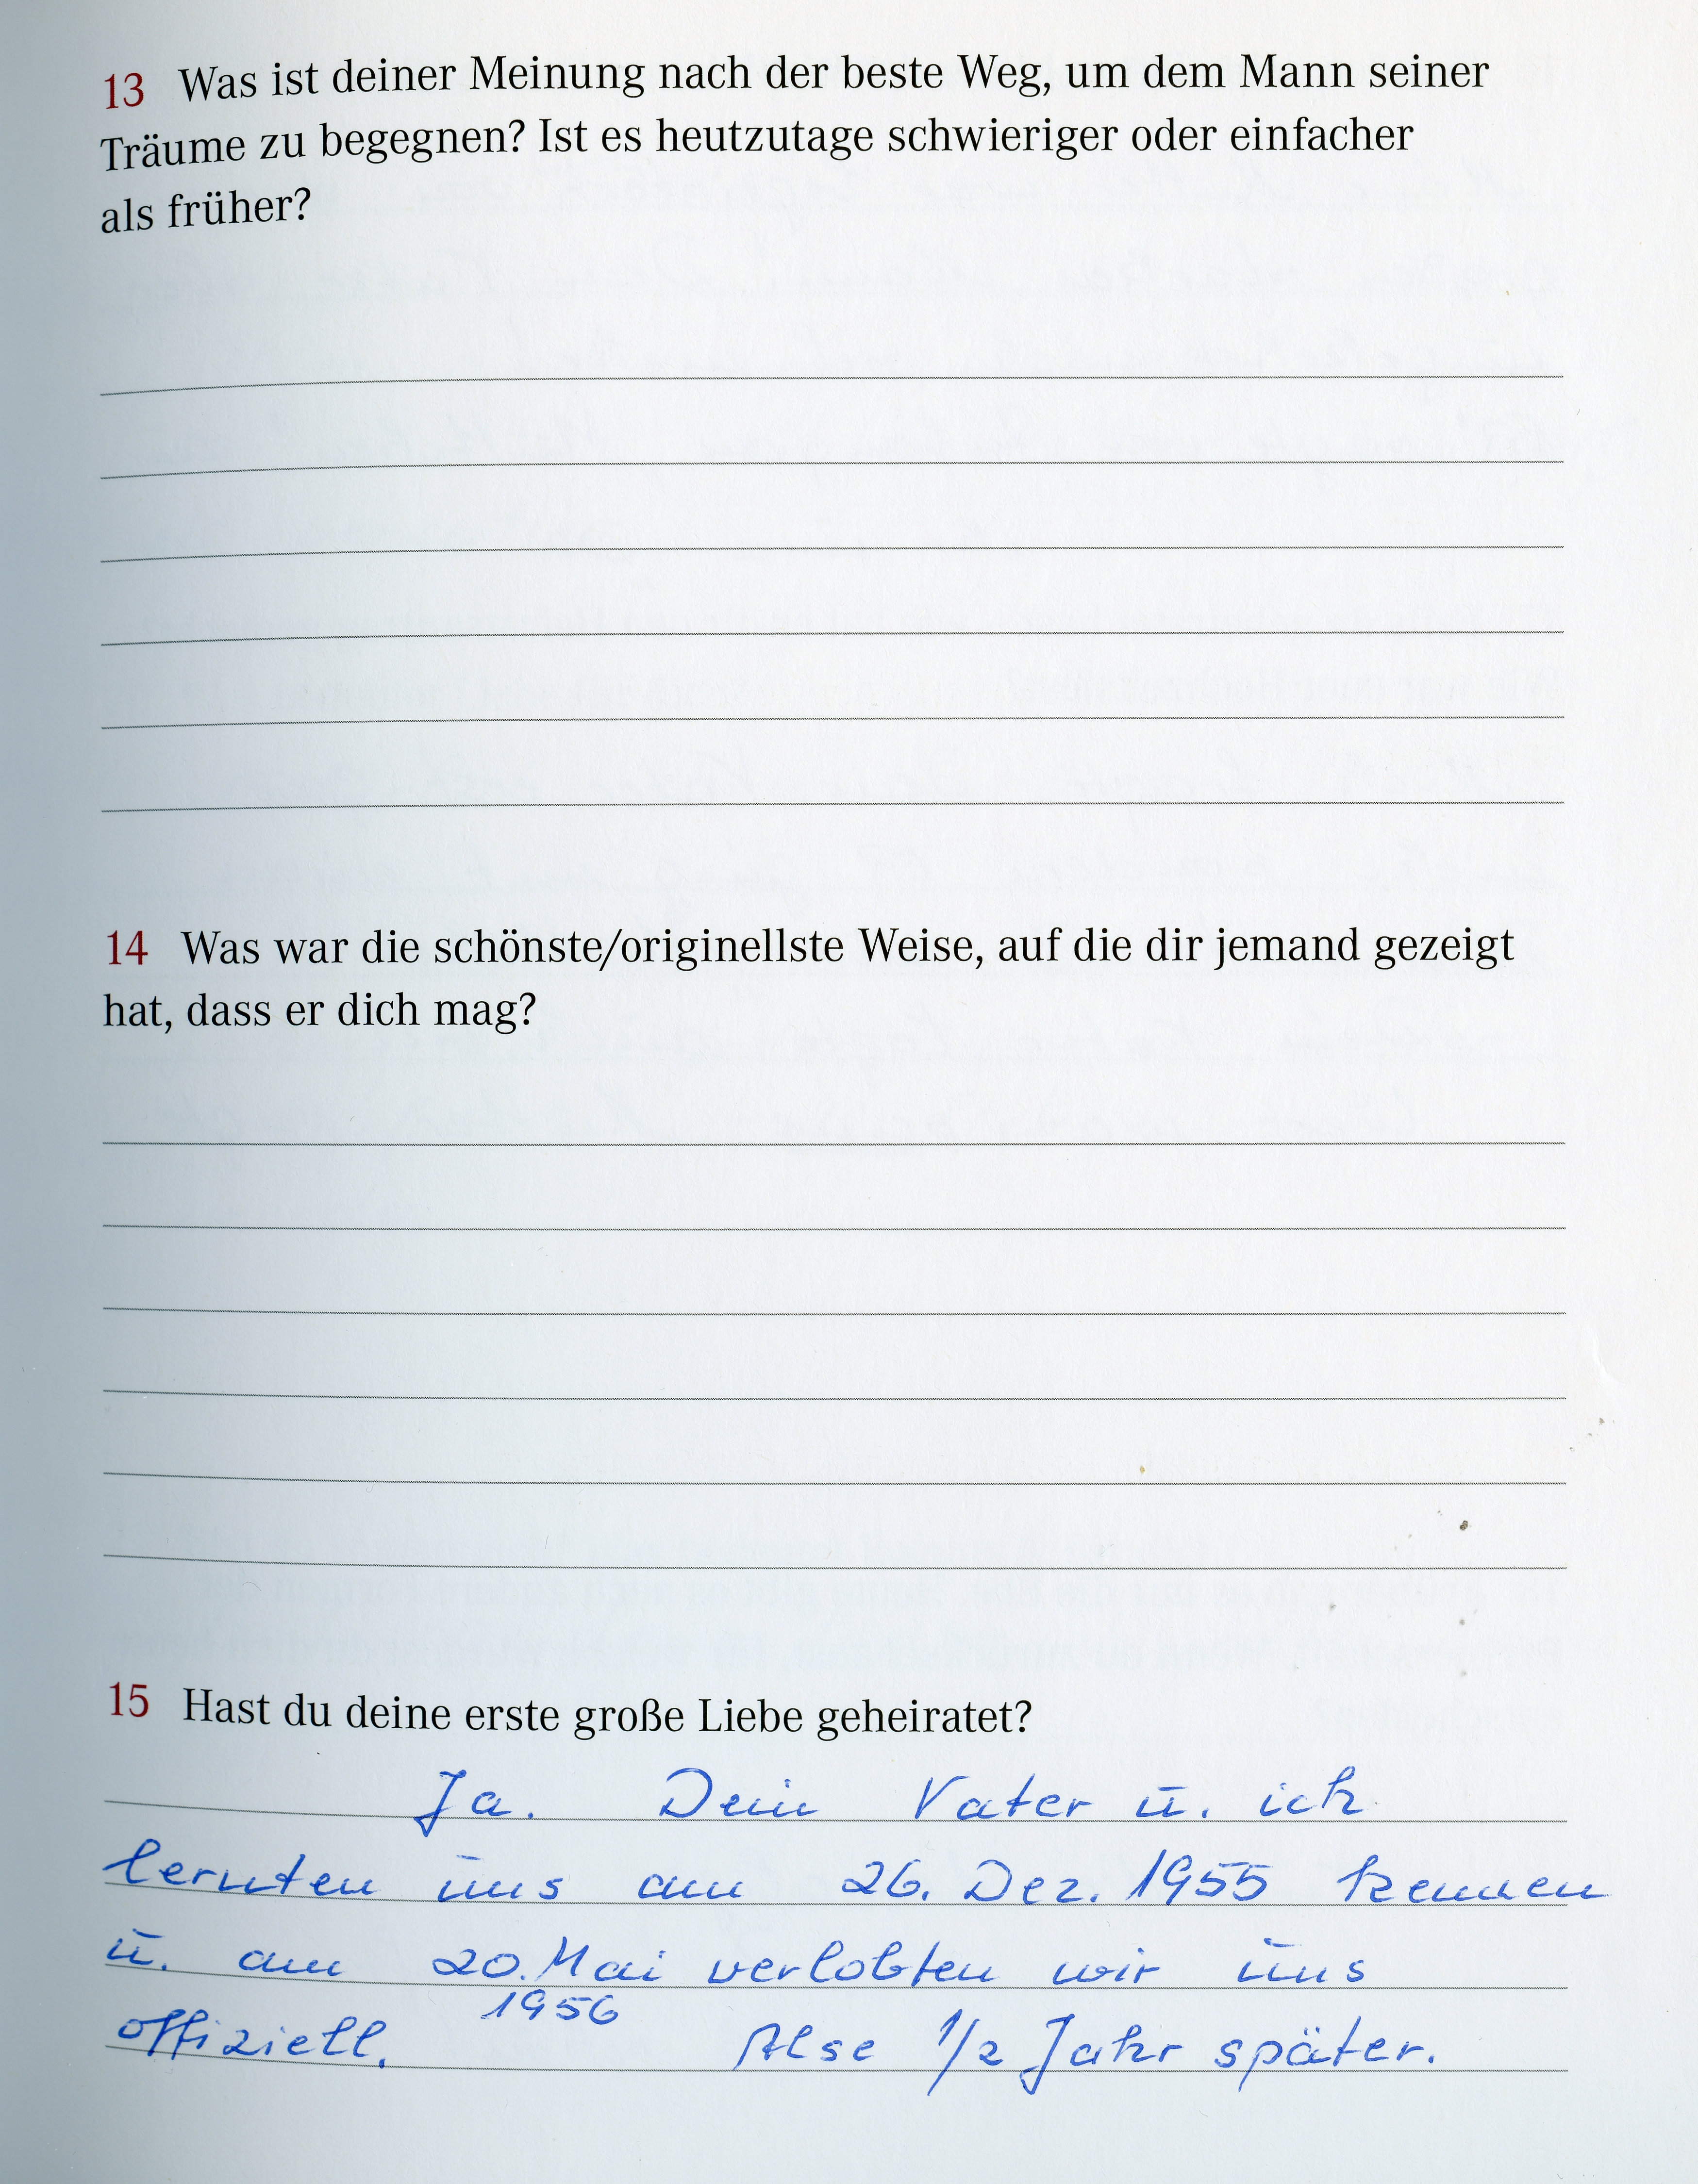 13 Was ist deiner Meinung nach der beste Weg, um dem Mann seiner
Träume zu begegnen? Ist es heutzutage schwieriger oder einfacher
als früher?
14 Was war die schönste/originellste Weise, auf die dir jemand gezeigt
hat, dass er dich mag?
15 Hast du deine erste große Liebe geheiratet?
Ja. Dein Vater u. ich
lernten uns am 26. Dez. 1955 kennen
u. am 20. Mai verlobten wir uns
1956
offiziell. Also 1/2 Jahr später.